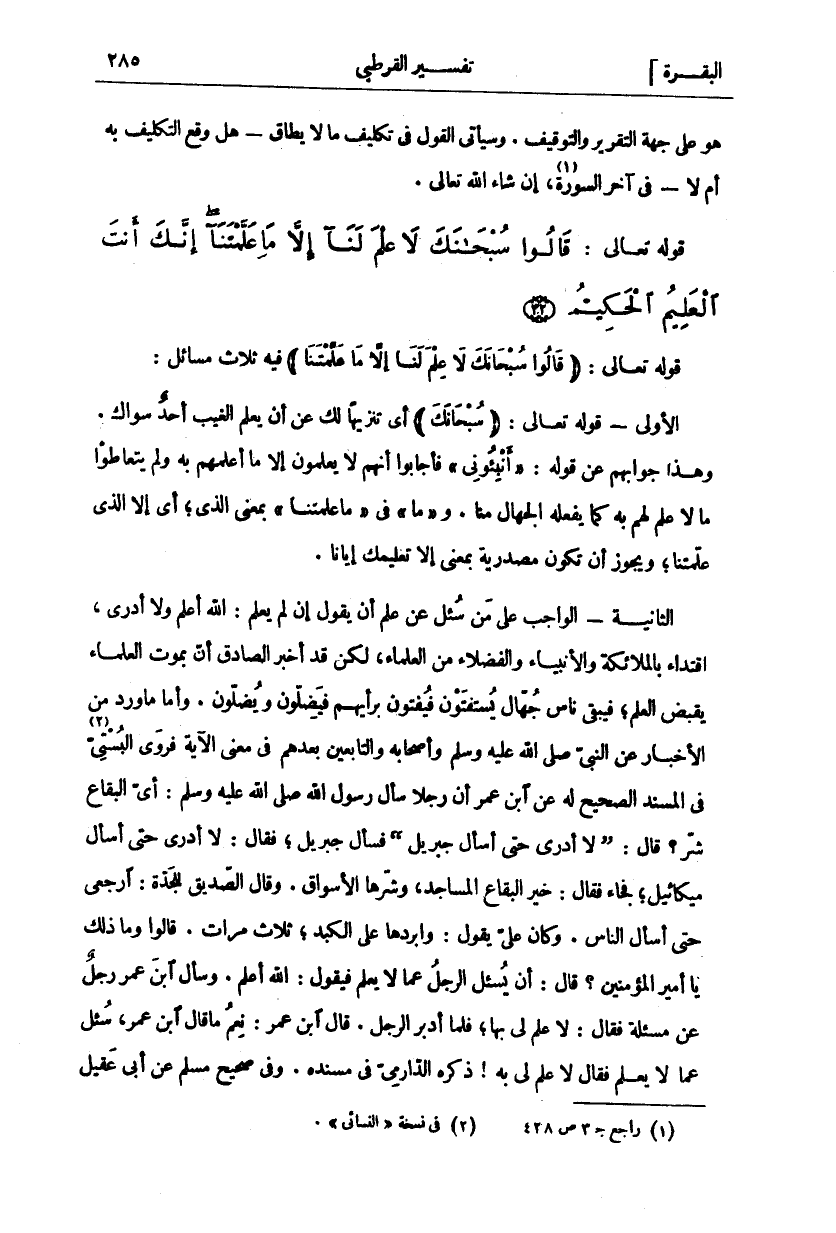 البقـــرة ]
تفســـير القرطبي
٢٨٥
هو على جهة التقرير والتوقيف . وسيأتى القول فى تكليف ما لا يطاق — هل وقع التكليف به
أم لا — فى آخر السورة(١)، إن شاء الله تعالى .
قوله تعـالى : قَالُوا سُبْحَٰنَكَ لَا عِلْمَ لَنَآ إِلَّا مَا عَلَّمْتَنَآ ۖ إِنَّكَ أَنتَ
ٱلْعَلِيمُ ٱلْحَكِيمُ ﴿٣٢﴾
قوله تعـالى : ﴿ قَالُوا سُبْحَانَكَ لَا عِلْمَ لَنَـا إِلَّا مَا عَلَّمْتَنَا ﴾ فيه ثلاث مسائل :
الأولى — قوله تعـالى : ﴿ سُبْحَانَكَ ﴾ أى تنزيهًا لك عن أن يعلم الغيب أحدٌ سواك .
وهـذا جوابهم عن قوله : « أَنْبِئُونِى » فأجابوا أنهم لا يعلمون إلا ما أعلمهم به ولم يتعاطَوْا
ما لا علم لهم به كما يفعله الجهال منا . و « ما » فى « ما علمتنـا » بمعنى الذى؛ أى إلا الذى
علّمتنا؛ ويجوز أن تكون مصدرية بمعنى إلا تعليمك إيانا .
الثانيـــة — الواجب على مَن سُئل عن علم أن يقول إن لم يعلم : الله أعلم ولا أدرى ،
اقتداء بالملائكة والأنبيـاء والفضلاء من العلماء، لكن قد أخبر الصادق أنّ بموت العلمـاء
يقبض العلم؛ فيبقى ناس جُهّال يُستفتَوْن فيُفتون برأيهـم فيَضِلّون ويُضلّون . وأما ماورد من
الأخبـار عن النبىّ صلى الله عليه وسلم وأصحابه والتابعين بعدهم فى معنى الآية فروَى البُسْتىّ(٢)
فى المسند الصحيح له عن ٱبن عمر أن رجلا سأل رسول الله صلى الله عليه وسلم : أىّ البقاع
شرّ ؟ قال : ” لا أدرى حتى أسأل جبريل “ فسأل جبريل ؛ فقال : لا أدرى حتى أسأل
ميكائيل؛ فجاء فقال : خير البقاع المساجد، وشرّها الأسواق . وقال الصّديق للجَدّة : ٱرجعى
حتى أسأل الناس . وكان علىّ يقول : وابردها على الكبد ؛ ثلاث مرات . قالوا وما ذلك
يا أمير المؤمنين ؟ قال : أن يُسئل الرجلُ عما لا يعلم فيقول : الله أعلم . وسأل ٱبنَ عمر رجلٌ
عن مسئلة فقال : لا علم لى بها؛ فلما أدبر الرجل . قال ٱبن عمر : نِعْمَ ماقال ٱبن عمر، سُئل
عما لا يعـلم فقال لا علم لى به ! ذكره الدّارمىّ فى مسنده . وفى صحيح مسلم عن أبى عَقيل
(١) راجع جـ ٣ ص ٤٢٨
(٢) فى نسخة « النسائى » .